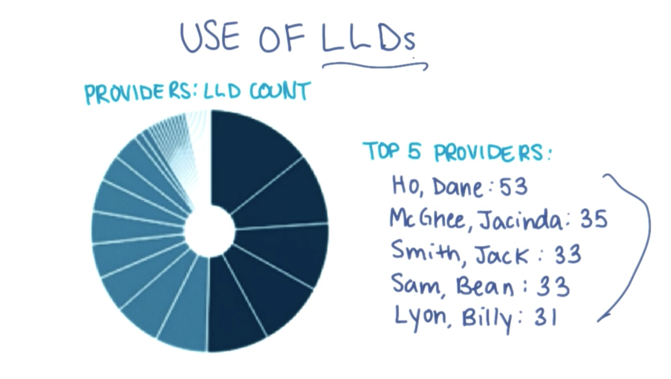 USE OF LLDs
PROVIDERS: LLD COUNT
TOP 5 PROVIDERS:
Ho, Dane: 53
McGhee, Jacinda: 35
Smith, Jack: 33
Sam, Bean: 33
Lyon, Billy: 31